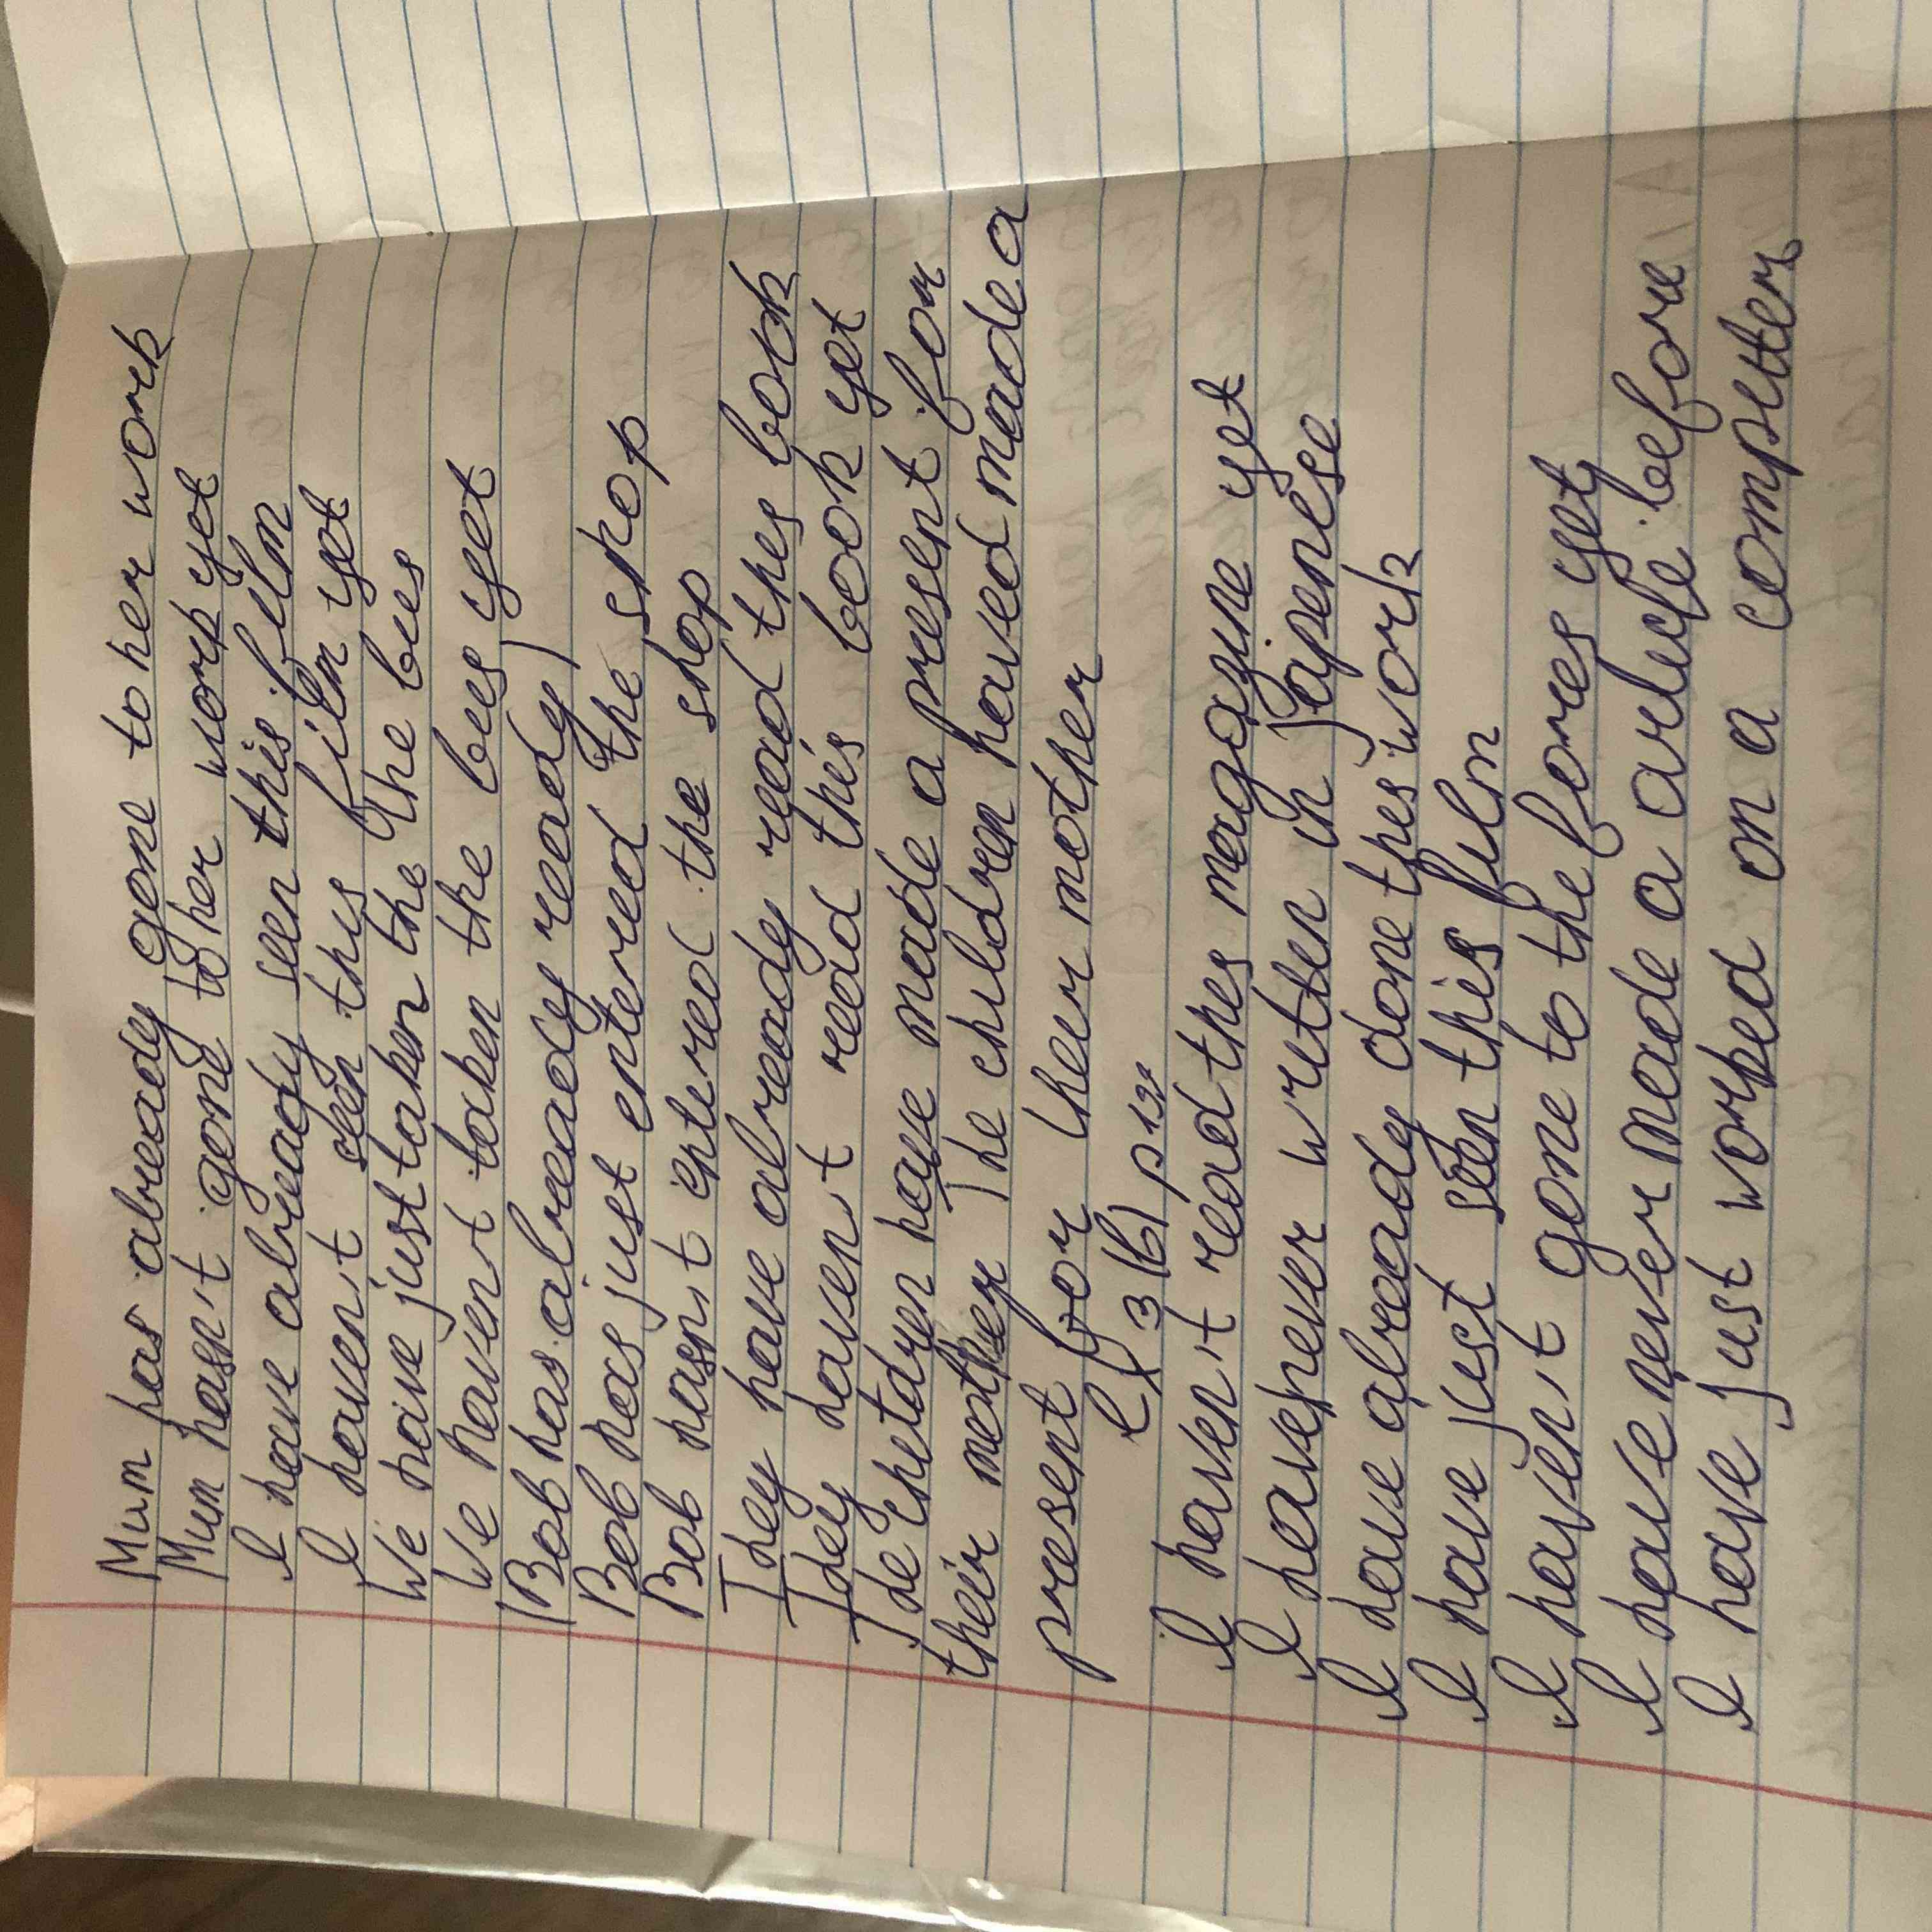 Mum has already gone to her work
Mum hasn't gone to her work yet
I have already seen this film
I haven't seen this film yet
We have just taken the the bus
We haven't taken the bus yet
(Bob has already ready)
Bob has just entered the shop
Bob hasn't entered the shop
They have already read this book
They haven't read this book yet
The children have made a present for
their mother The children haved made a
present for their mother
ex 3 (b) p 137
I haven't read this magazine yet
I have never written in Japenese
I have already done this work
I have just seen this film
I haven't gone to the fores yet
I have never made a article before
I have just worked on a computer